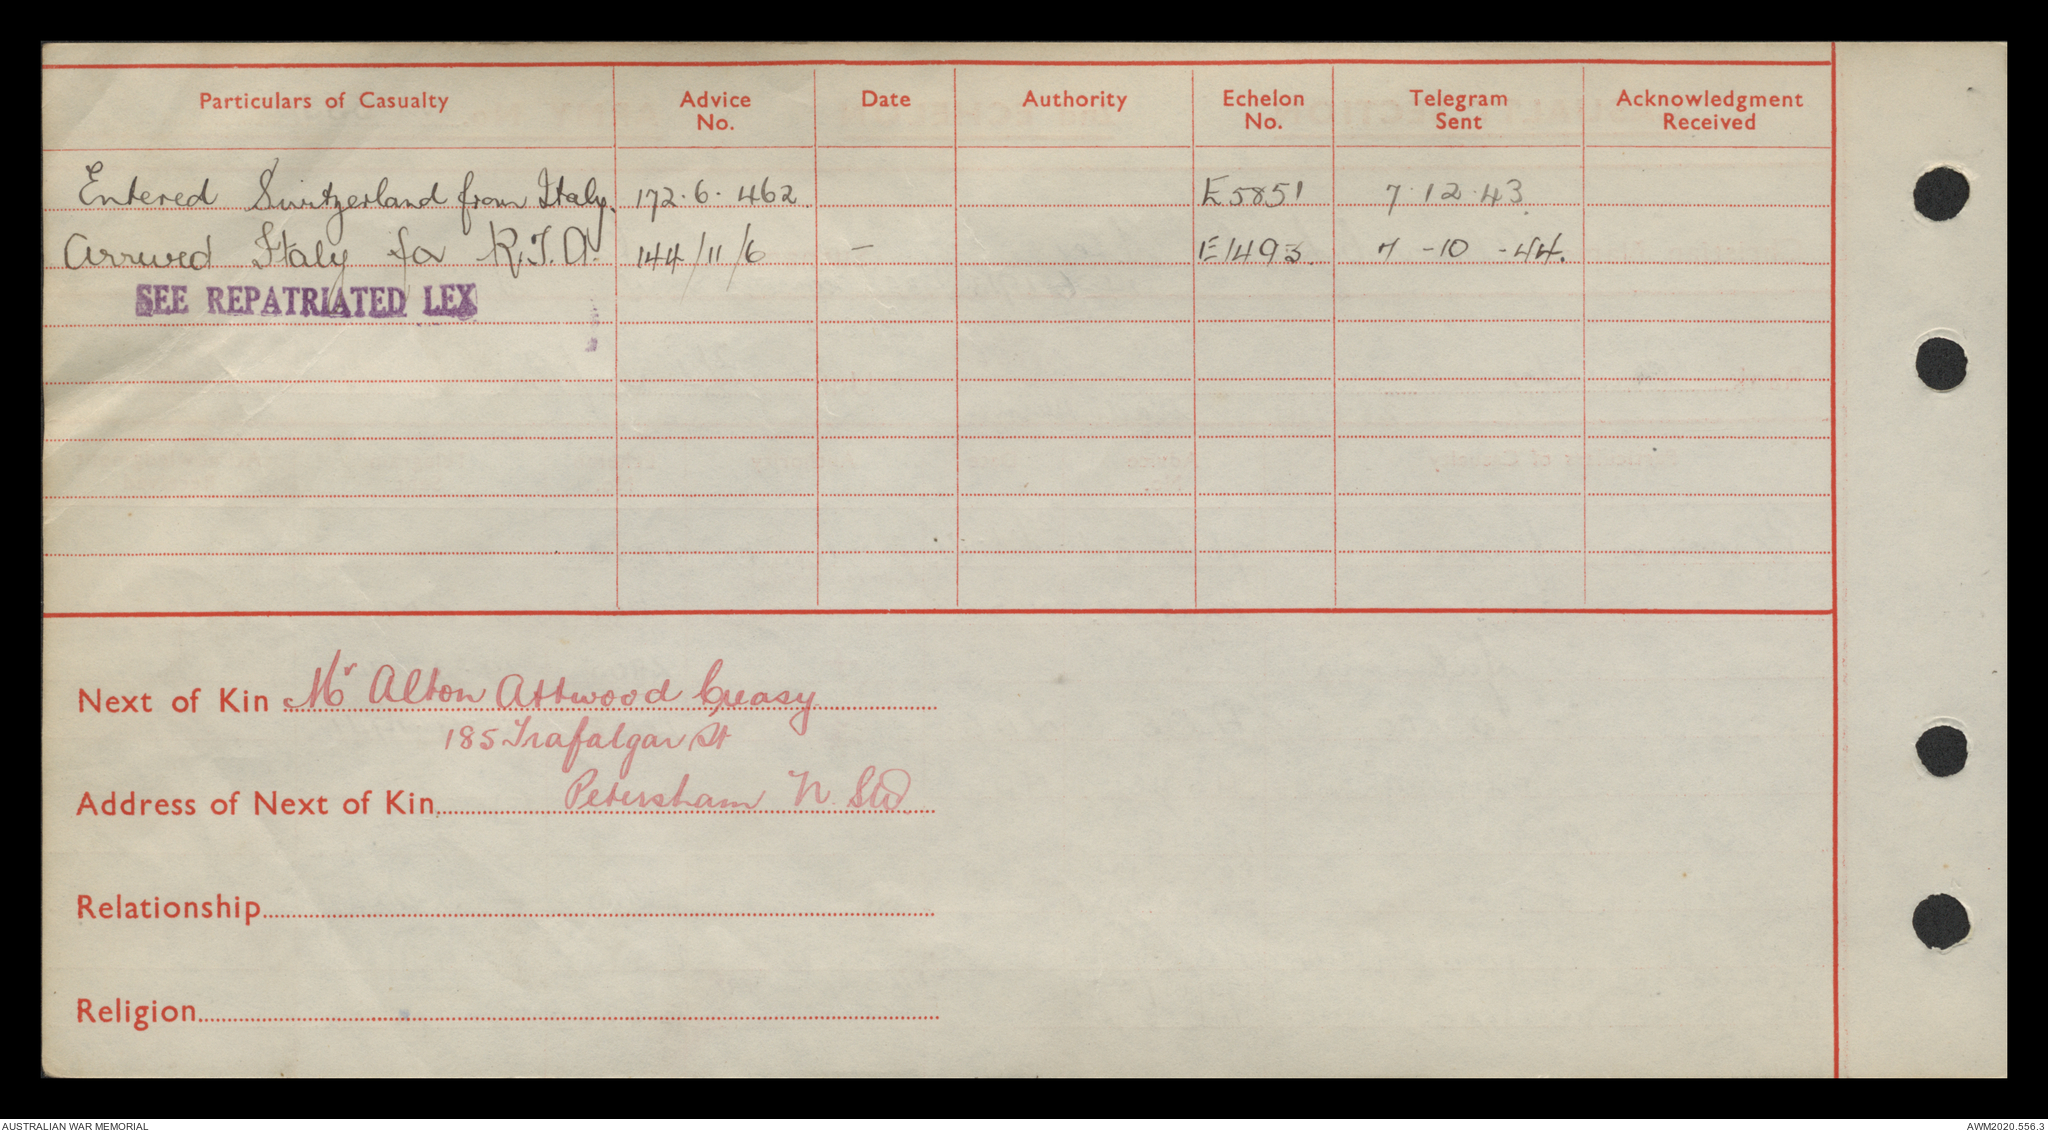 Particulars of Casualty Advice No. Date Authority Echelon No. Telegram Sent Acknowledgment Received
Entered Switzerland from Italy. 172.6.462 E5851 7.12.43
Arrived Italy for R.T.A. 144/11/6 — E1493. 7-10-44.
SEE REPATRIATED LEX
Next of Kin Mr Alton Attwood Creasy
185 Trafalgar St
Address of Next of Kin Petersham N.SW
Relationship
Religion
AUSTRALIAN WAR MEMORIAL AWM2020.556.3